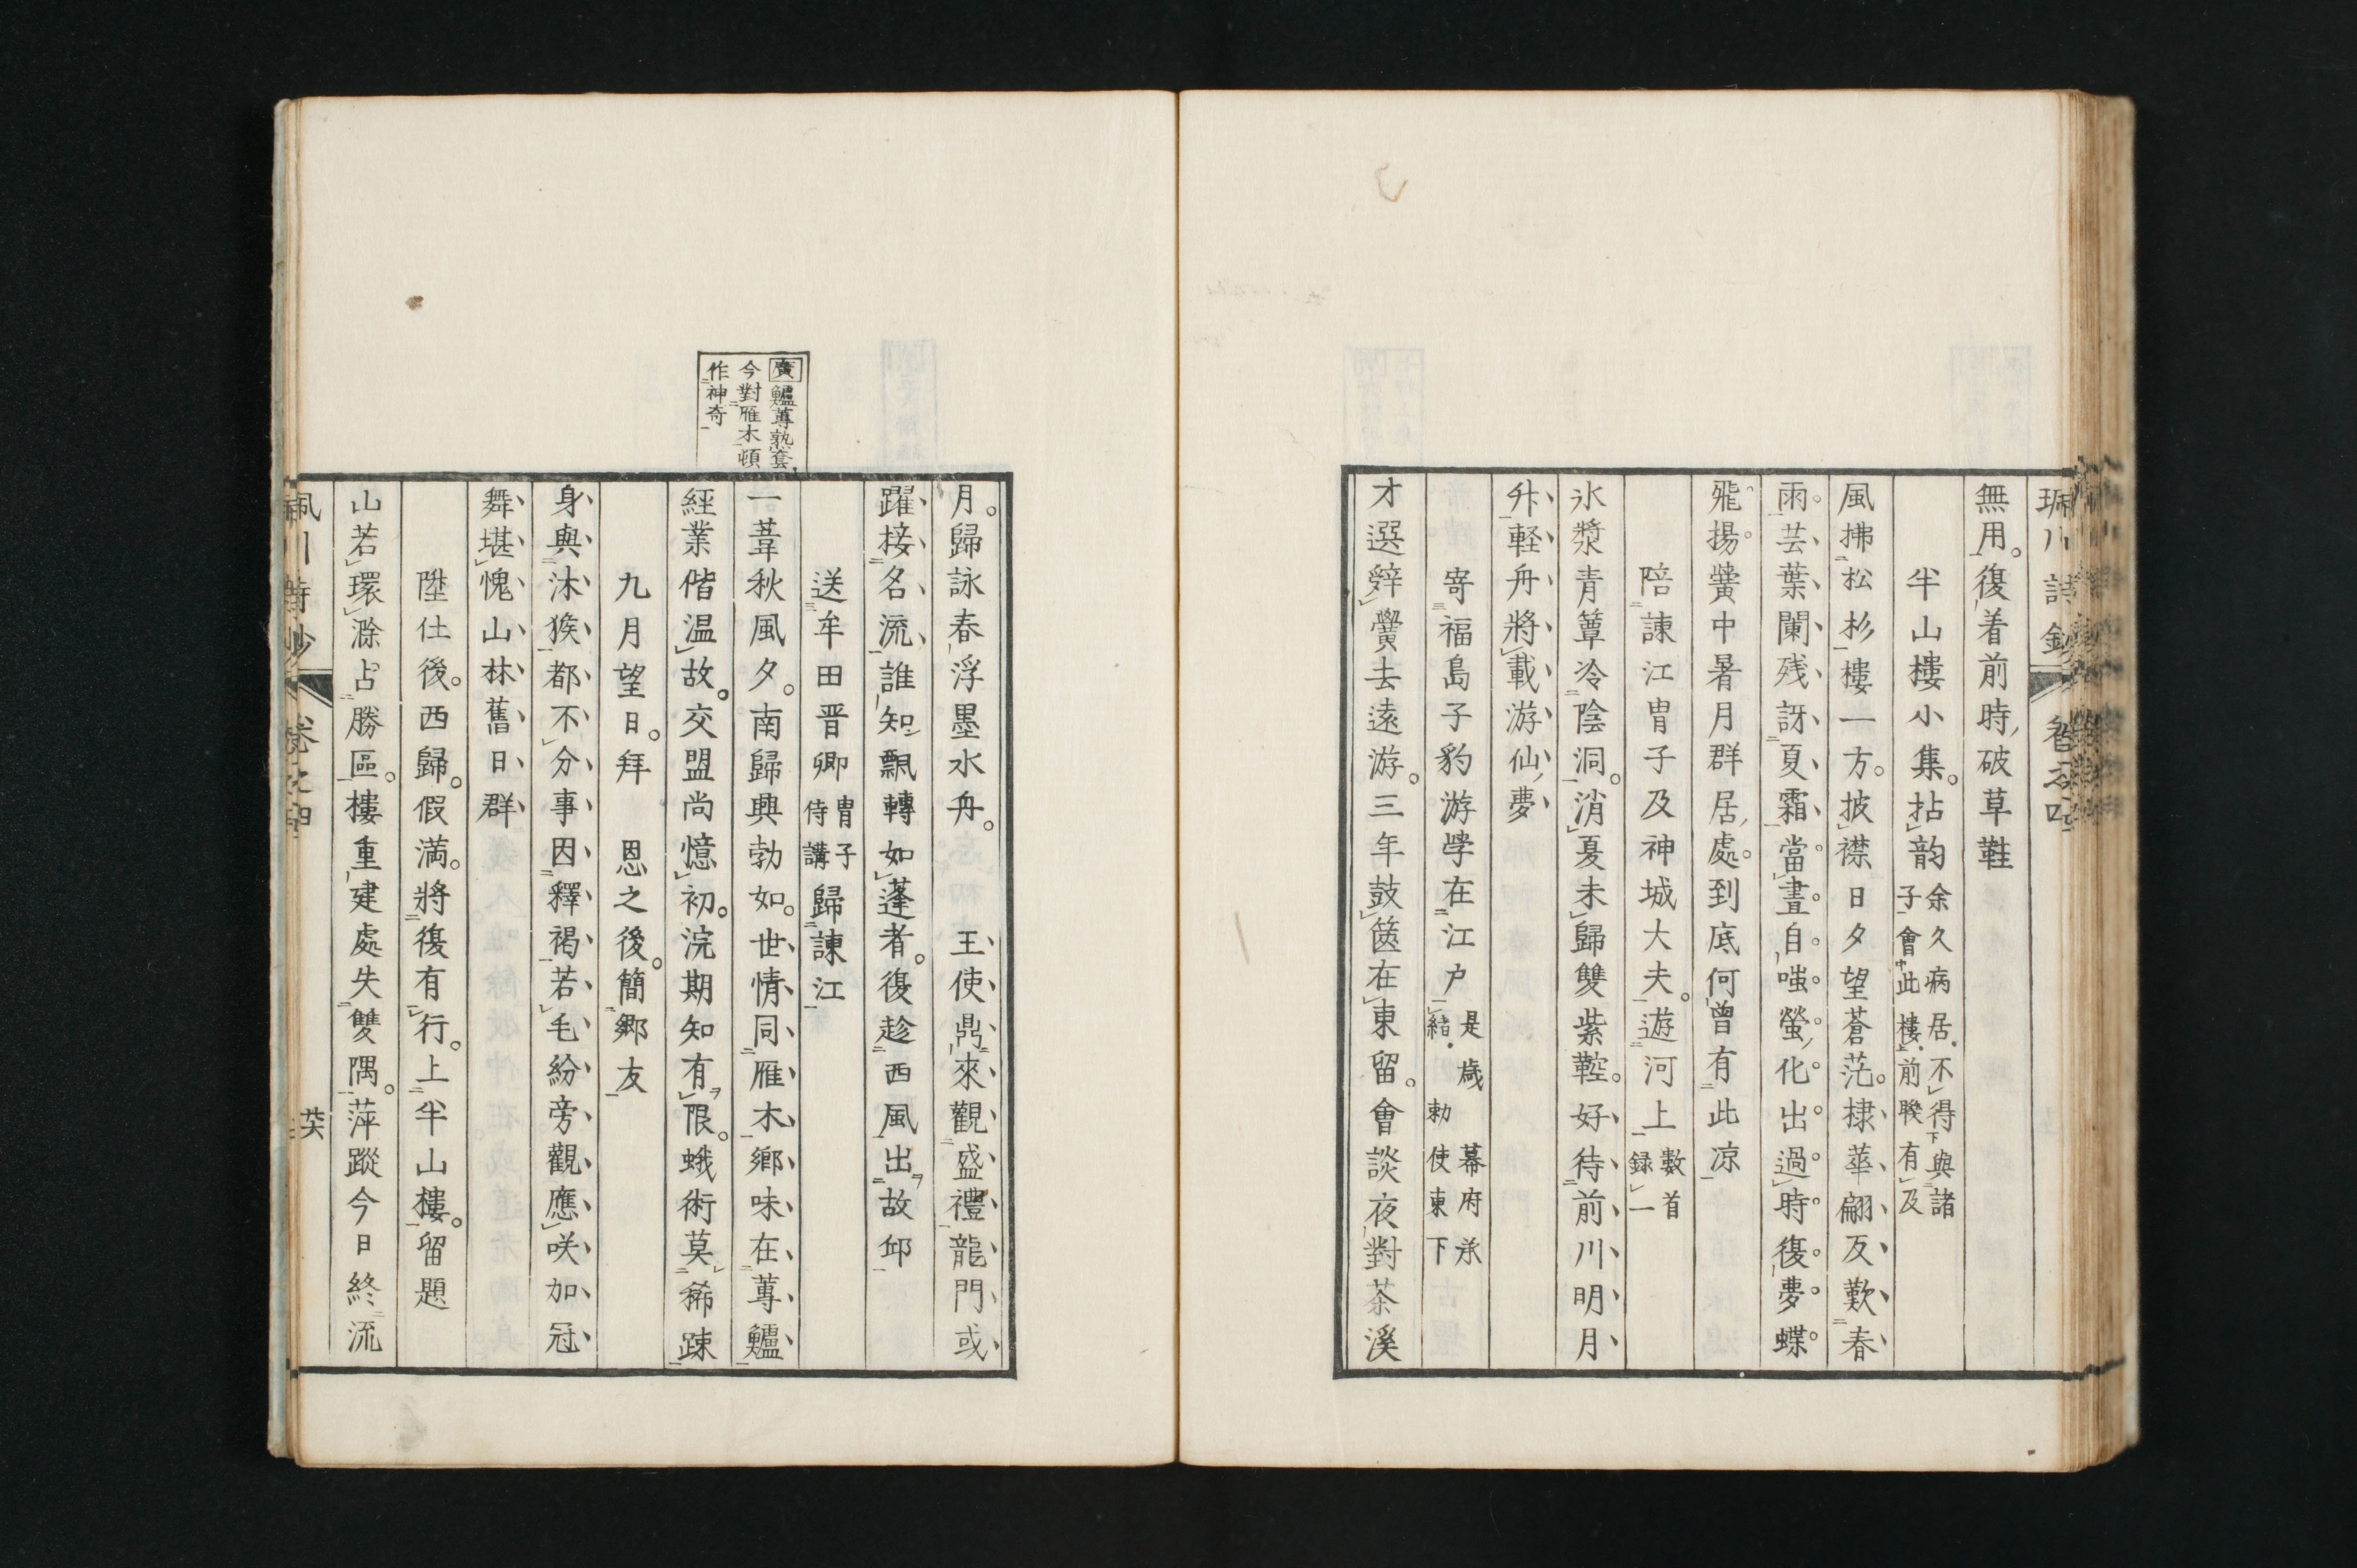 珮川詩鈔 卷之四
無用。復着前時破草鞋
半山樓小集。拈韵 余久病居。不得與諸子會此樓。前睽有及
風拂松杉樓一方。披襟日夕望蒼茫。棣華翩反歎春
雨。芸葉闌残訝夏霜。當晝自嗤螢化出過時復夢蝶
飛揚。黌中暑月群居處。到底何曾有此凉
陪諫江冑子及神城大夫。遊河上 數首録一
氷漿青簟冷陰洞。消夏未歸雙紫鞚。好待前川明月
升。軽舟將載游仙夢
寄福島子豹游学在江戸 是歳 幕府承 勅使東下 結。
才選辤黌去遠游。三年鼓篋在東留。會談夜對茶溪
廣 鱸蓴熟套
今對雁木頓
作神奇
月。歸詠春浮墨水舟。 王使鼎來觀盛禮龍門或
躍接名流誰知飄轉如蓬者。復趁西風出故邱
送牟田晋卿 冑子侍講 歸諫江
一葦秋風夕。南歸興勃如。世情同雁木鄉味在蓴鱸
經業偕温故。交盟尚憶初。浣期知有限。蛾術莫稀踈
九月望日。拜 恩之後。簡鄉友
身與沐猴都不分事因釋褐若毛紛旁觀應咲加冠
舞堪愧山林舊日群
陞仕後。西歸。假満。將復有行。上半山樓。留題
山若環滁占勝區。樓重建處失雙隅。萍蹤今日終流
珮川詩鈔 卷之四